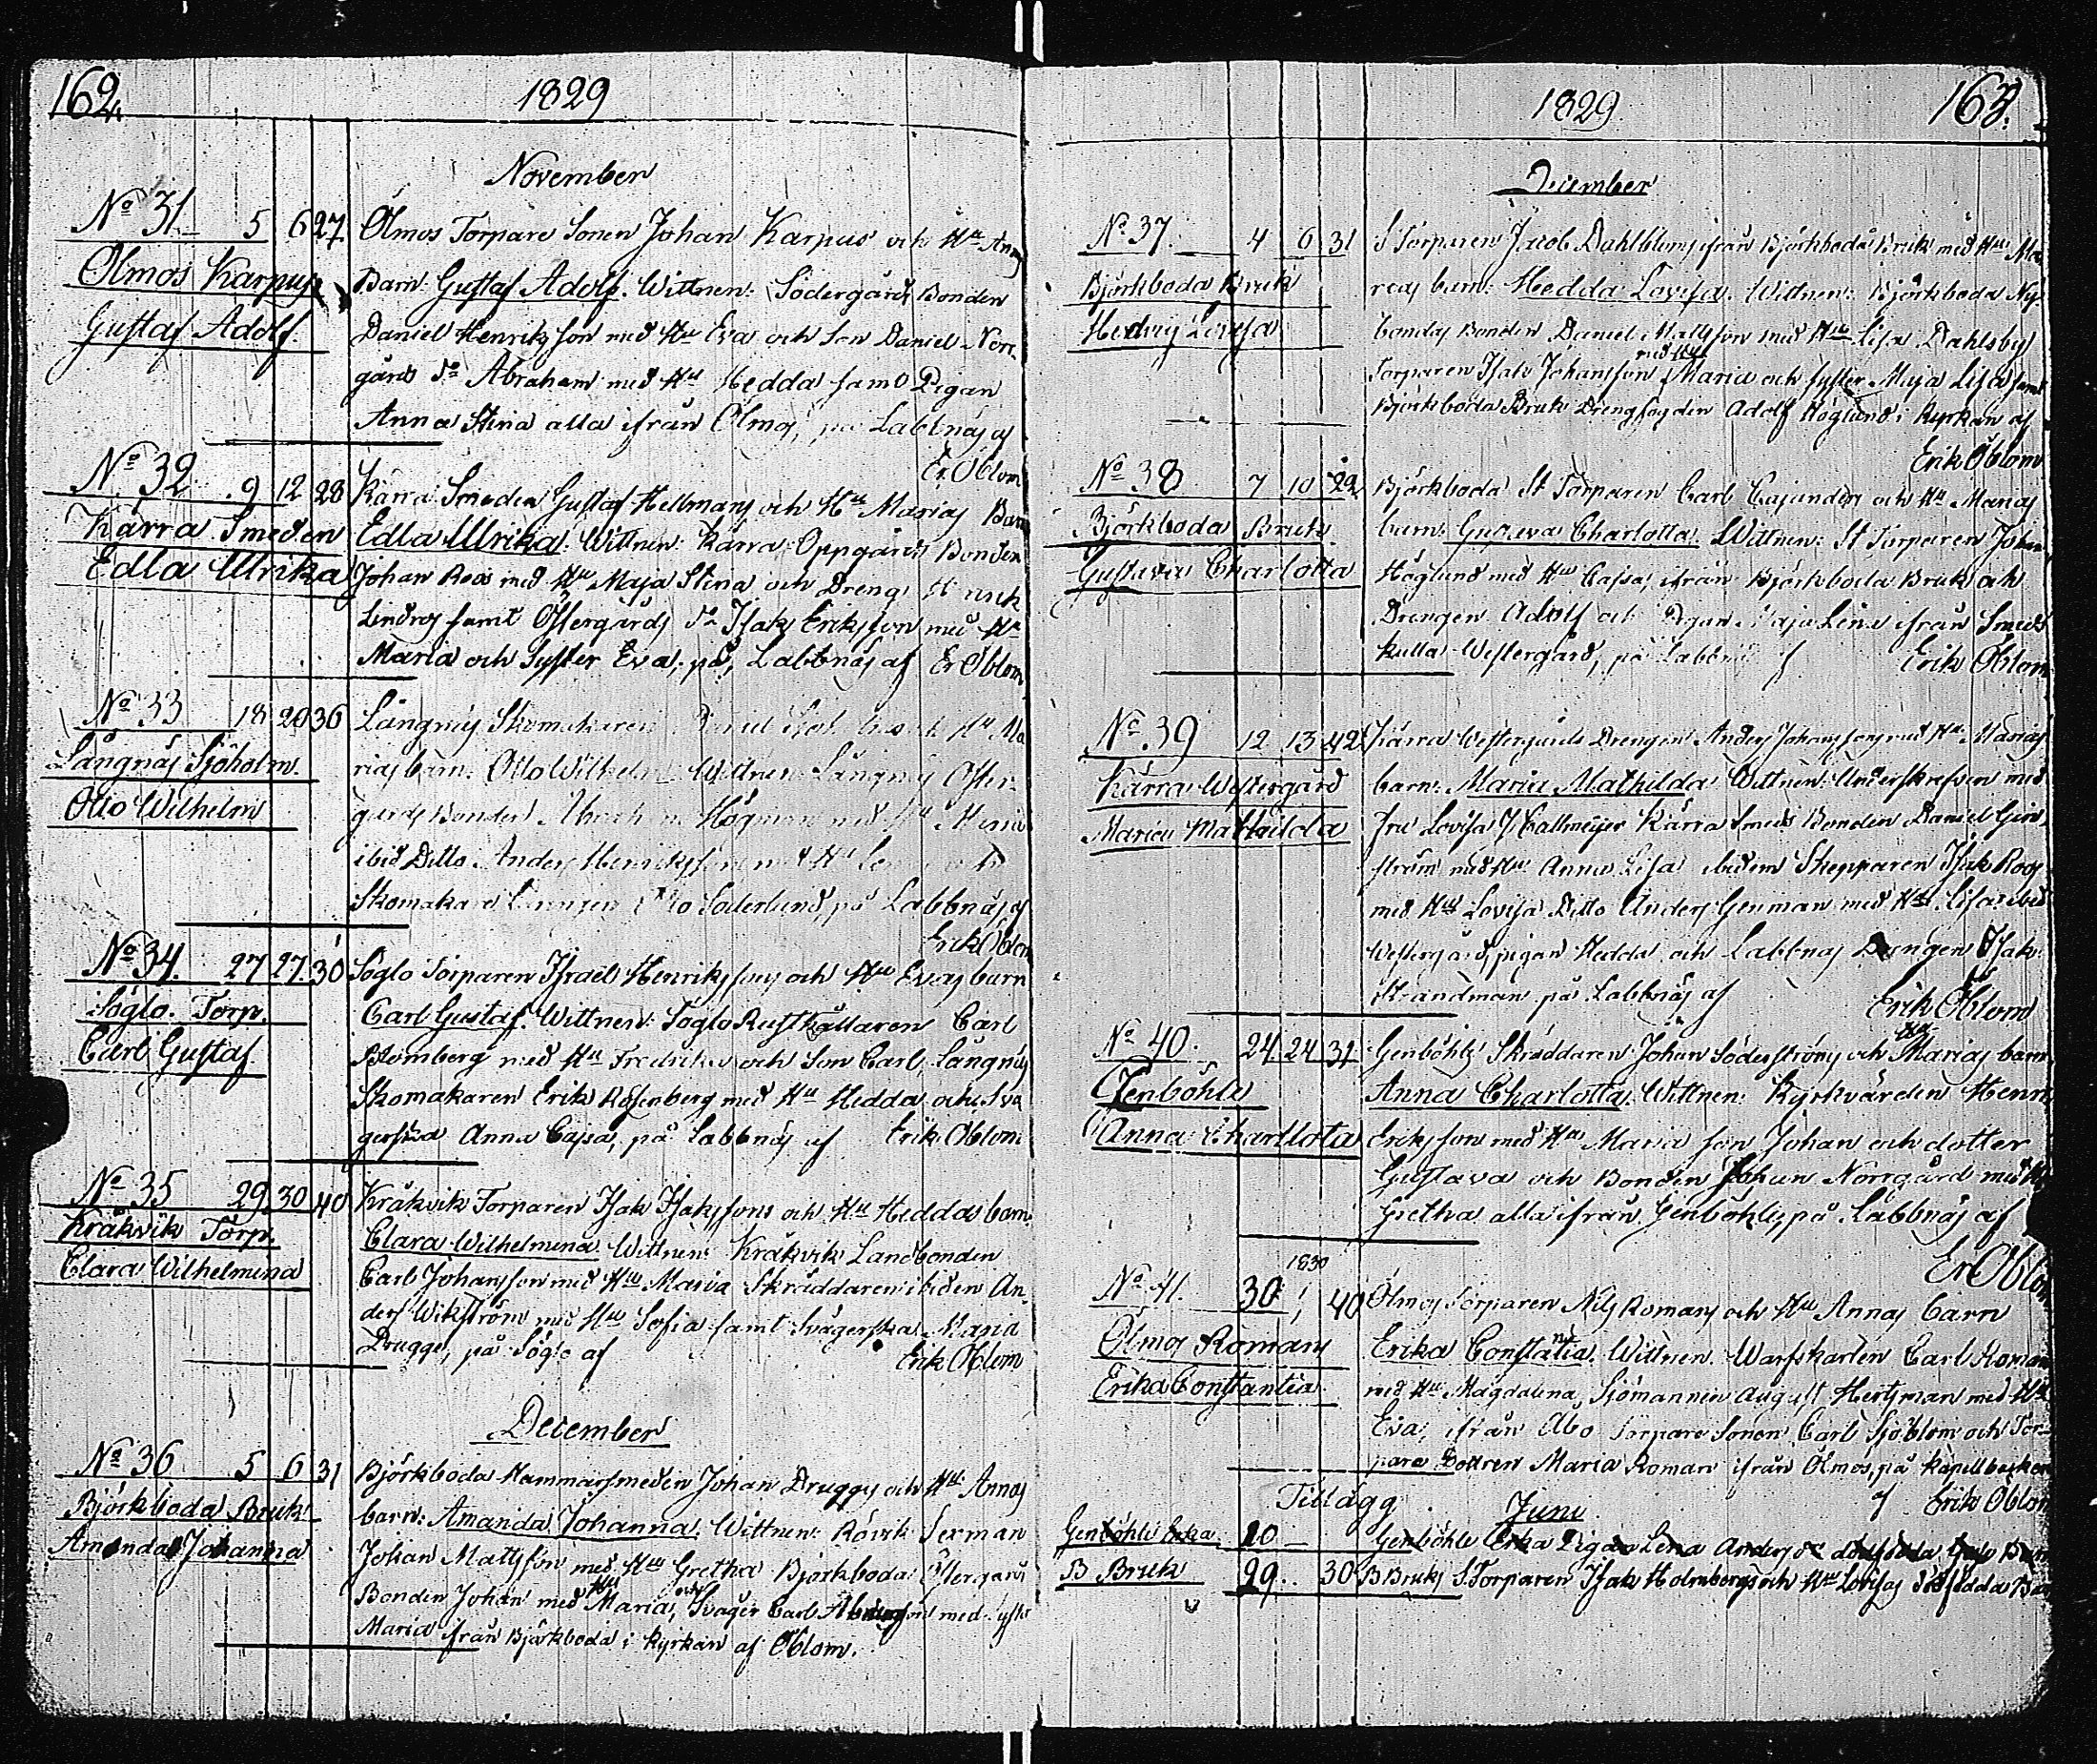 162.
1829
November
No 31 5 6 27. Ölmos Torpare Sonen Johan Karpus och Hu Annas
Ölmos Karpus Barn: Gustaf Adolf. Wittnen: Södergårds Bonden
Gustaf Adolf. Daniel Henriksson med Hu Eva och Son Daniel Norr-
gårds Do Abraham med Hu Hedda samt Pigan
Anna Stina alla ifrån Ölmos, på Labbnäs af
Er Öblom
No 32 9 12 28 Kärra Smeden Gustaf Hellmans och Hu Marias Barn
Kärra Smeden Edla Ulrika. Wittnen: Kärra Oppgårds Bonden
Edla Ulrika Johan Roos med Hu Maja Stina och Dreng
Lindros samt Östergårds Do Isak Eriksson med Hu
Maria och Syster Eva, på Labbnäs af Er Öblom
No 33 18 20 36 Långnäs Skomakaren Hu Ma
Långnäs Sjöholm. rias barn: Otto Wilhelm Wittnen Långnäs Öster-
Otto Wilhelm gårds Bonden Högman med Hu Maria
ibid Ditto Anders Henriksson med Hu
Skomakare Söderlund, på Labbnäs af
Erik Öblom
No 34. 27 27. 30 Söglo Torparen Israel Henrikssons och Hu Evas barn
Söglo. Torp. Carl Gustaf. Wittnen: Söglo Rusthållaren Carl
Carl Gustaf Blomberg med Hu Fredrika och Son Carl, Långnäs
Skomakaren Erik Rosenberg med Hu Hedda och Svä
gerska Anna Cajsa, på Labbnäs af Erik Öblom
No 35 29 30 40 Kråkvik Torparen Isak Isakssons och Hu Heddas barn
Kråkvik Torp. Clara Wilhelmina. Wittnen: Kråkvik Landbonden
Clara Wilhelmina Carl Johansson med Hu Maria Skräddaren ibidem An-
ders Wikström med Hu Sofia samt Svägerska Maria
Drugge, på Söglo af Erik Öblom
December
No 36 5 6 31 Björkboda Hammarsmeden Johan Druggs och Hu Annas
Björkboda Bruk barn: Amanda Johanna. Wittnen: Rövik Sexman
Amanda Johanna Johan Mattsson med Hu Gretha Björkboda Östergårds
Bonden Johan med Hu Maria, Svåger Carl med Syster
Maria ifrån Björkboda i kyrkan af Öblom.
1829.
163.
December
No 37. 4 6 31 S Torparen Jacob Dahlbloms ifrån Björkboda Bruk med Hu Ma
Björkboda Bruk rias barn: Hedda Lovisa. Wittnen: Björkboda Ny-
Hedvig Lovisa bondas Bonden Daniel Mattsson med Hu Lisa Dahlsby
Torparen Isak Johansson med Hu Maria och syster Maja Lisa samt
Björkboda Bruk Drengfogden Adolf Höglund i Kyrkan af
Erik Öblom
No 38 7 10 22 Björkboda St Torparen Carl Cajanders och Hu Marias
Björkboda Bruk. barn: Gustava Charlotta. Wittnen: St Torparen Johan
Gustava Charlotta Höglund med Hu Cajsa, ifrån Björkboda Bruk och
Drengen Adolf och Pigan Maja Lena ifrån Smeds
kulla Westergård, på Labbnäs af Erik Öblom
No 39 12 13 42 Kärra Westergårds Drengen Anders Johanssons med Hu Marias
Kärra Westergård barn: Maria Mathilda Wittnen: Underskrefven med
Maria Mathilda Fru Lovisa J Callmeijer Kärra Smeds Bonden Daniel
ström med Hu Anna Lisa ibidem Skepparen Isak Roos
med Hu Lovisa Ditto Anders Genman med Hu Lisa ibid
Westergård, pigan Hedda och Labbnäs Drengen Isak
Strandman på Labbnäs af Erik Öblom
No 40. 24 24 31 Genböhle Skräddaren Johan Söderströms och Hu Marias barn
Genböhle Anna Charlotta. Wittnen: Kyrkvärden Henr
Anna Charllota Eriksson med Hu Maria son Johan och dotter
Gustava och Bonden Johan Norrgård med Hu
Gretha alla ifrån Genböhle, på Labbnäs af
Er Öblom
1830
No 41. 30 1 40 Ölmos Torparen Nils Romans och Hu Annas barn
Ölmos Romans Erika Constantia. Wittnen. Warfskarlen Carl Roman
Erika Constantia. med Hu Magdalena, Sjömannen August Hertsman med Hu
Eva, ifrån Åbo Torpare Sonen Carl Sjöblom och Tor-
pare Dottren Maria Roman ifrån Ölmos, på Kapellbacken
af Erik Öblom
Tillägg. Juni
Genböhle 20 Genböhle Pigan Lena dödfödda
B Bruk 29. 30 B Bruks S Torparen Isak Holmbergs och Hu Lovisas dödfödda Barn